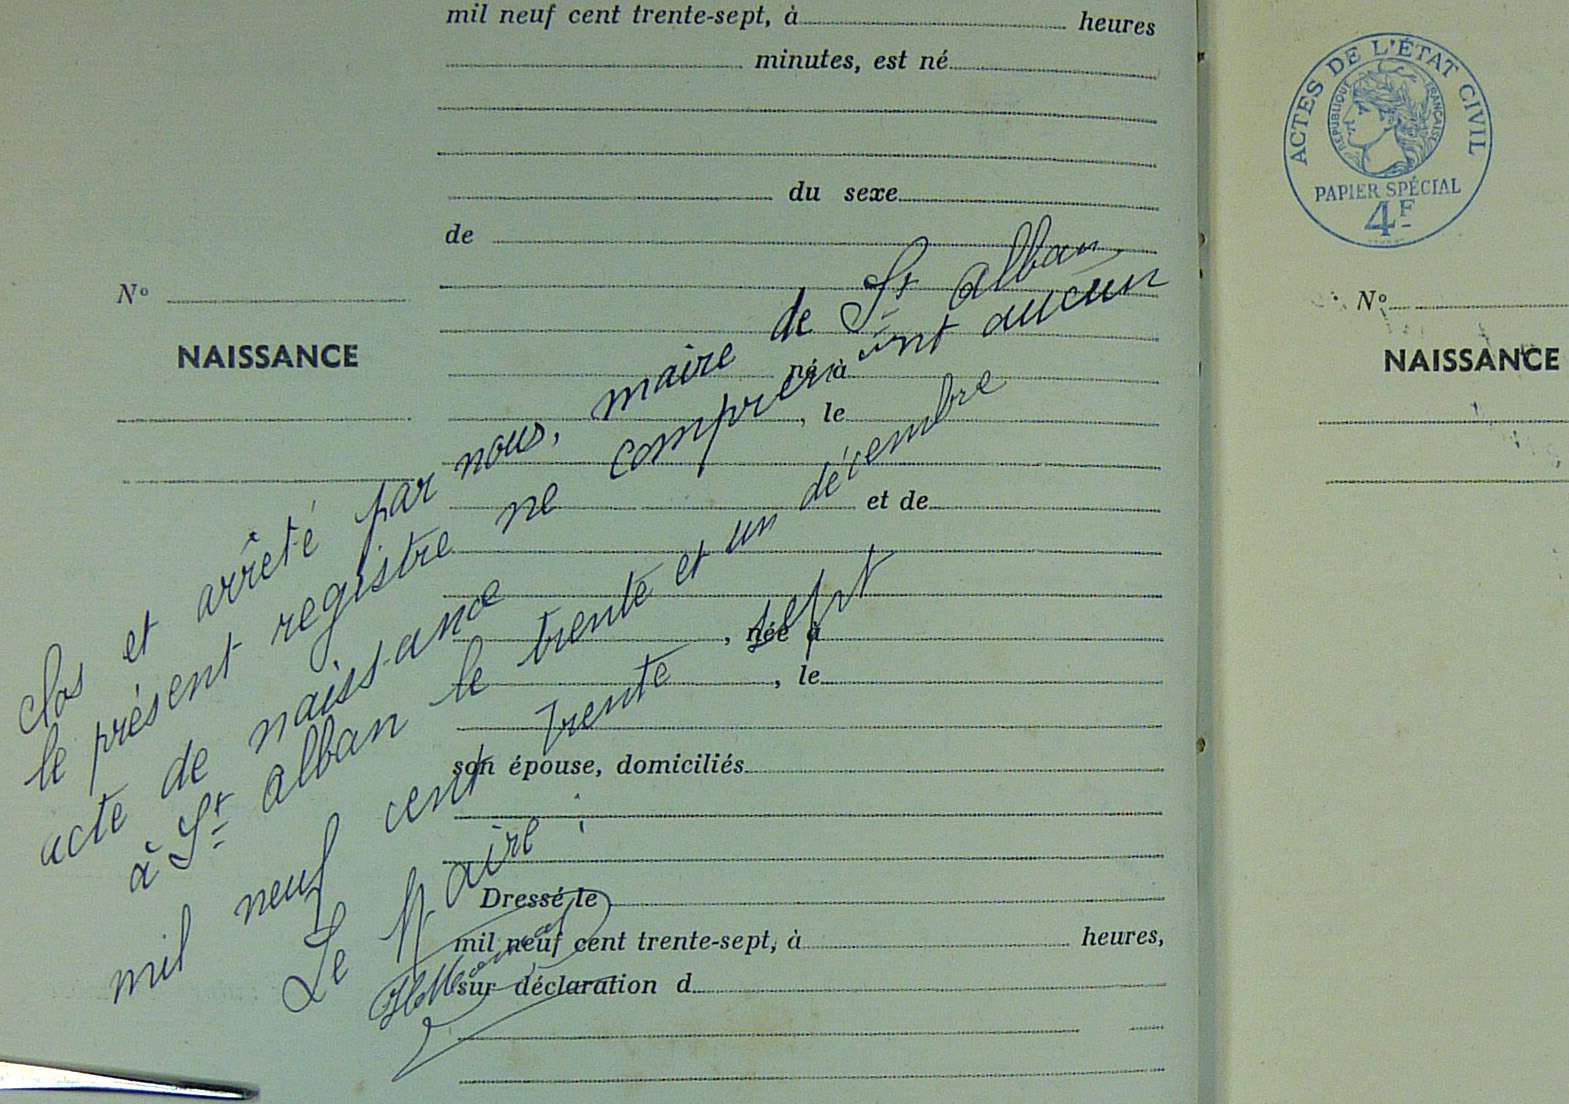 mil neuf cent trente-sept, à heures
minutes, est né
du sexe
de
N°
NAISSANCE
né à
, le
et de
, née à
, le
son épouse, domiciliés
Dressé le
mil neuf cent trente-sept, à heures,
sur déclaration d
Clos et arrêté par nous, maire de St alban
le présent registre ne comprenant aucun
acte de naissance
à St alban le trente et un décembre
mil neuf cent trente sept
Le Maire :
ACTES DE L'ÉTAT CIVIL
RÉPUBLIQUE FRANÇAISE
PAPIER SPÉCIAL
4F
N°
NAISSANCE